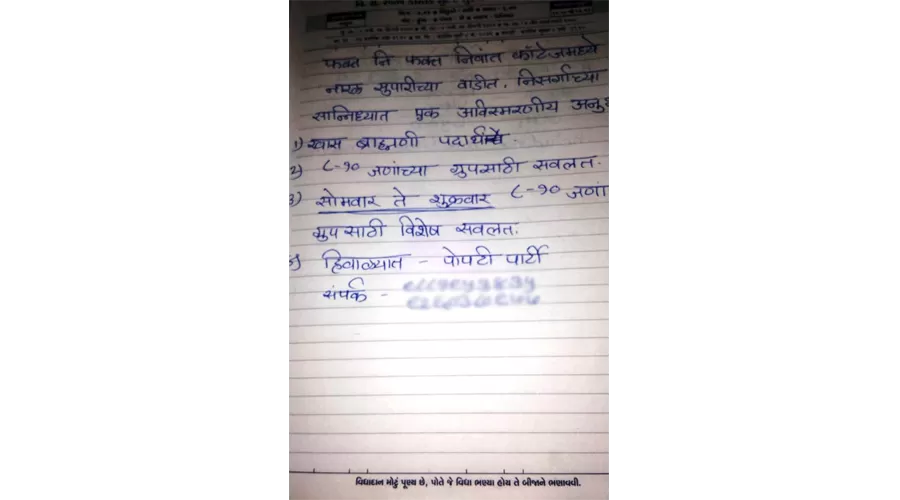 फक्त नि फक्त निवांत कॉटेजमध्ये
नारळ सुपारीच्या वाडीत, निसर्गाच्या
सान्निध्यात एक अविस्मरणीय
1) खास ब्राह्मणी पदार्थ
2) ८-१० जणांच्या ग्रुपसाठी सवलत.
3) सोमवार ते शुक्रवार ८-१० जणां
ग्रुपसाठी विशेष सवलत.
हिवाळ्यात - पोपटी पार्टी
संपर्क -
વિદ્યાદાન મોટું પૂણ્ય છે, પોતે જે વિદ્યા ભણ્યા હોય તે બીજાને ભણાવવી.